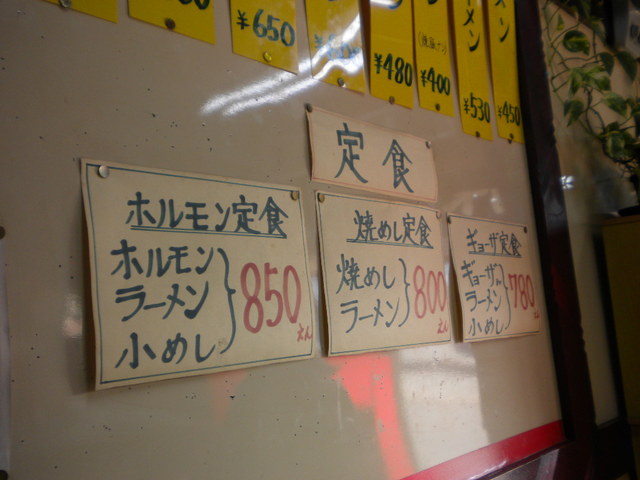 ¥650
¥480
¥400
メン
¥530
メン
¥450
定食
ホルモン定食
ホルモン
ラーメン
小めし
850
えん
焼めし定食
焼めし
ラーメン
800
えん
ギョーザ定食
ギョーザ
ラーメン
小めし
780